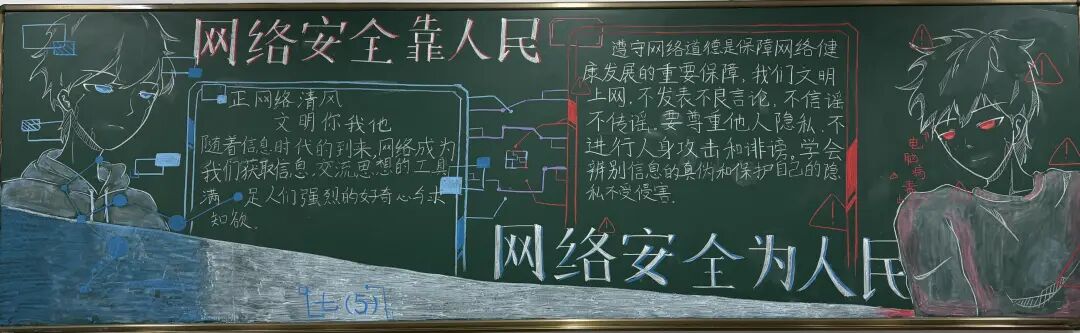 网络安全靠人民
正网络清风
文明你我他
随着信息时代的到来,网络成为
我们获取信息、交流思想的工具
满足人们强烈的好奇心与求
知欲.
遵守网络道德是保障网络健
康发展的重要保障,我们文明
上网,不发表不良言论,不信谣
不传谣。要尊重他人隐私,不
进行人身攻击和诽谤。学会
辨别信息的真伪和保护自己的隐
私不受侵害.
电脑病毒
网络安全为人民
七(5)